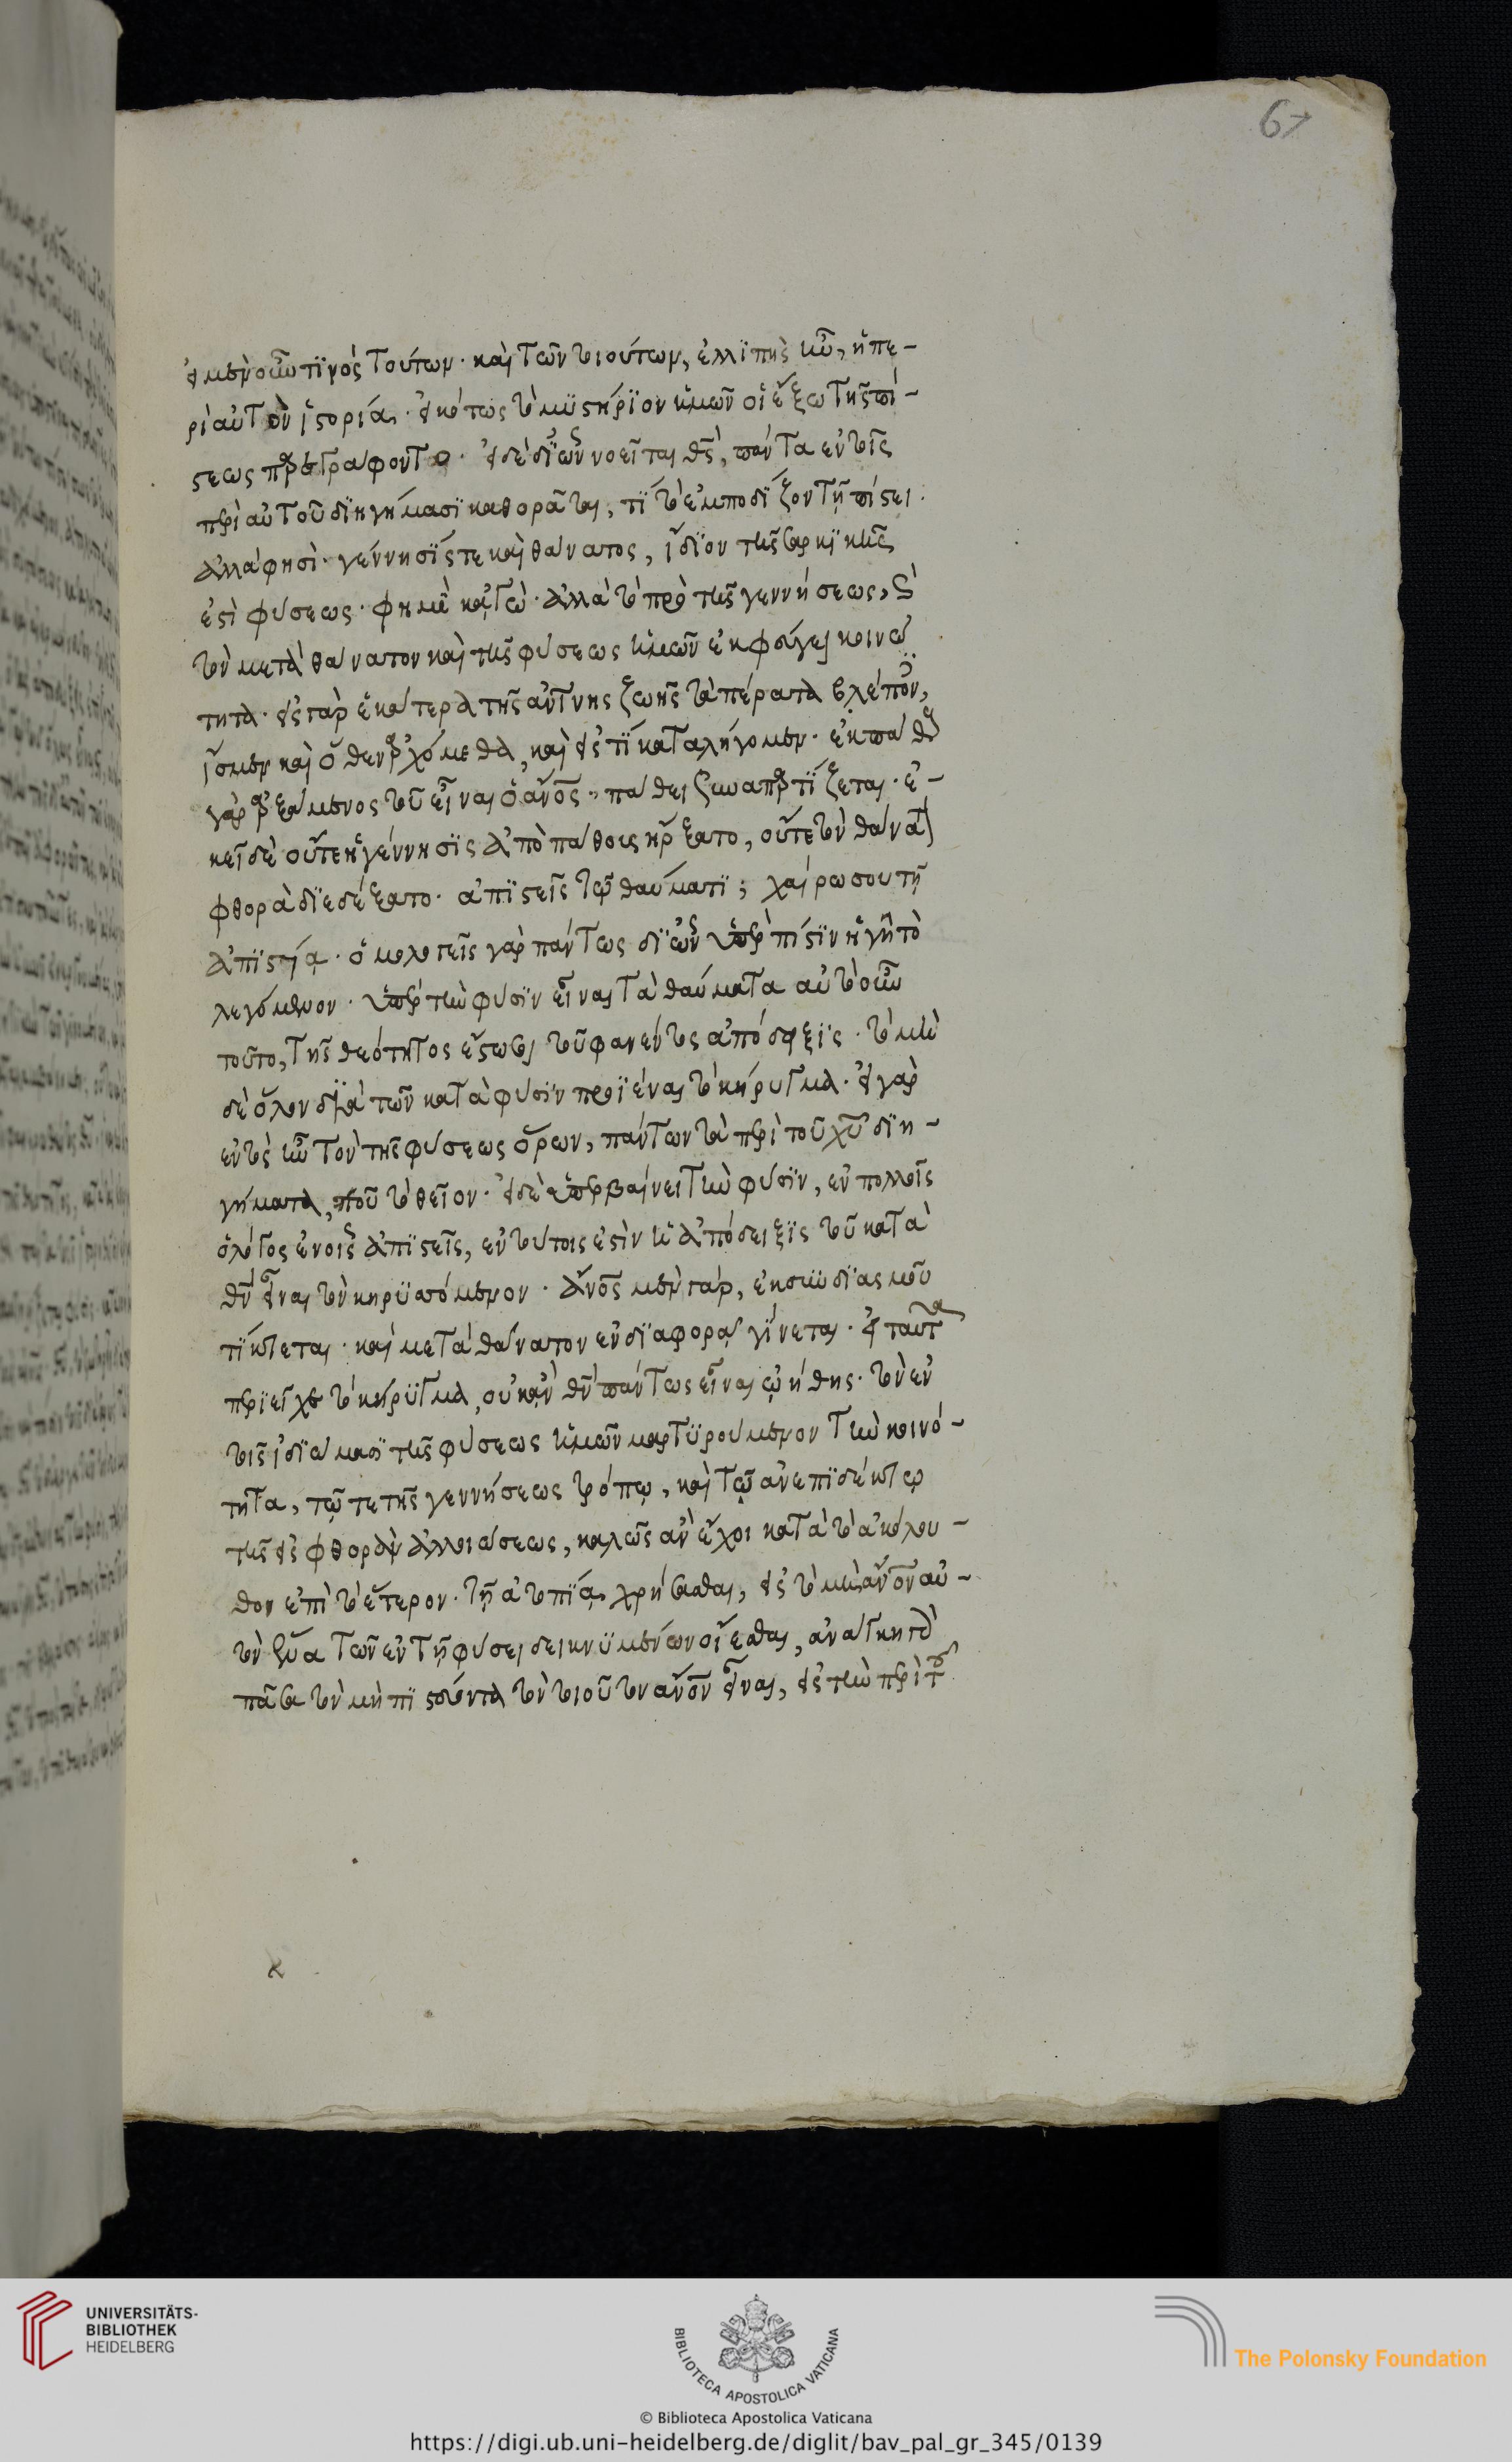 εἰ μὲν οὖν τϊνὸς τούτων· καὶ τῶν τοιούτων, ἐλλϊπὴς ἦν, ἡ πε-
ρὶ αὐτὸν ἱστορία. εἰκότως τὸ μϋστήρϊον ἡμῶν οἱ ἔξω τῆς πί-
στεως παρεγράφοντο. εἰ δὲ δϊ ὧν νοεῖται θς, πάντα ἐν τοῖς
περὶ αὐτοῦ δϊηγήμασϊ καθορᾶται, τϊ τὸ ἐμποδϊζον τῇ πίστει·
ἀλλά φησὶ· γέννησΐς τε καὶ θάνατος, ἴδϊον τῆς σαρκϊκῆς
ἐστὶ φύσεως· φημὶ κἀγὼ· ἀλλὰ τὸ πρὸ τῆς γεννήσεως, καὶ
τὸν μετὰ θάνατον καὶ τῆς φύσεως ἡμῶν ἐκφεύγει κοινό
τητα. εἰς γὰρ ἑκάτερα τῆς ἀνίνης ζωῆς τὰ πέρατα βλέπον,
ἴσμεν καὶ ὅθεν ἀρχόμεθα, καὶ εἰς τϊ καταλήγομεν. ἐκ πάθους
γὰρ ἀρξάμενος τοῦ εἶναι ὁ ἄνος· πάθει συναπαρτΐζεται. ἐ-
κεῖ δὲ οὔτε ἡ γέννησϊς ἀπὸ πάθους ἤρξατο, οὔτε τὸν θάνατ
φθορὰ δϊεδέξατο. ἀπϊστεῖς τῷ θαύματϊ; χαίρω σου τῇ
ἀπϊστίᾳ. ὁμολογεῖς γὰρ πάντως δϊ ὧν ὑπὲρ πίστϊν ἡγῇ τὸ
λεγόμενον. ὑπὲρ τὴν φύσϊν εἶναι τὰ θαύματα αὐτὸ οὖν
τοῦτο, τῆς θεότητος ἔστω σοι τοῦ φανέντος ἀπόδειξϊς. τὸ μὴ
δὲ ὅλον διὰ τῶν κατὰ φύσϊν προϊέναι τὸ κήρυγμα. εἰ γὰρ
ἐντὸς ἦν τὸν τῆς φύσεως ὅρων, πάντων τὰ περὶ τοῦ χῦ δϊη-
γήματα, ποῦ τὸ θεῖον. εἰ δὲ ὑπερβαίνει τὴν φύσϊν, ἐν πολλοῖς
ὁ λόγος ἐν οἷς ἀπϊστεῖς, ἐν τούτοις ἐστὶν ἡ ἀπόδειξϊς τοῦ κατὰ
θν εἶναι τὸν κηρϋσσόμενον. ἄνος μὲν γὰρ, ἐκ συνδϊασμοῦ
τΐκτεται· καὶ μετὰ θάνατον ἐν δϊαφορᾷ γΐνεται. εἰ ταῦτα
περϊεῖχε τὸ κήρϋγμα, οὐκ ἂν θν πάντως εἶναι ᾠήθης. τὸν ἐν
τοῖς ἰδϊώμασϊ τῆς φύσεως ἡμῶν μαρτϋρούμενον τὴν κοινό-
τητα, τῷ τε τῆς γεννήσεως τρόπῳ, καὶ τῷ ἀνεπϊδέκτῳ
τῆς εἰς φθορὰν ἀλλοιώσεως, καλῶς ἂν ἔχοι κατὰ τὸ ἀκόλου-
θον ἐπὶ τὸ ἕτερον. τῇ ἀτοπϊᾳ χρήσασθαι, εἰς τὸ μὴ ἄνον αὐ-
τὸν ἕνα τῶν ἐν τῇ φύσει δεικνϋμένων οἴεσθαι, ἀνάγκη τὸ
πᾶσα τὸν μὴ πϊστεύοντα τὸν τοιοῦτον ἄνον εἶναι, εἰς τὴν περὶ τ
67
UNIVERSITÄTS-
BIBLIOTHEK
HEIDELBERG
BIBLIOTECA APOSTOLICA VATICANA
The Polonsky Foundation
© Biblioteca Apostolica Vaticana
https://digi.ub.uni-heidelberg.de/diglit/bav_pal_gr_345/0139